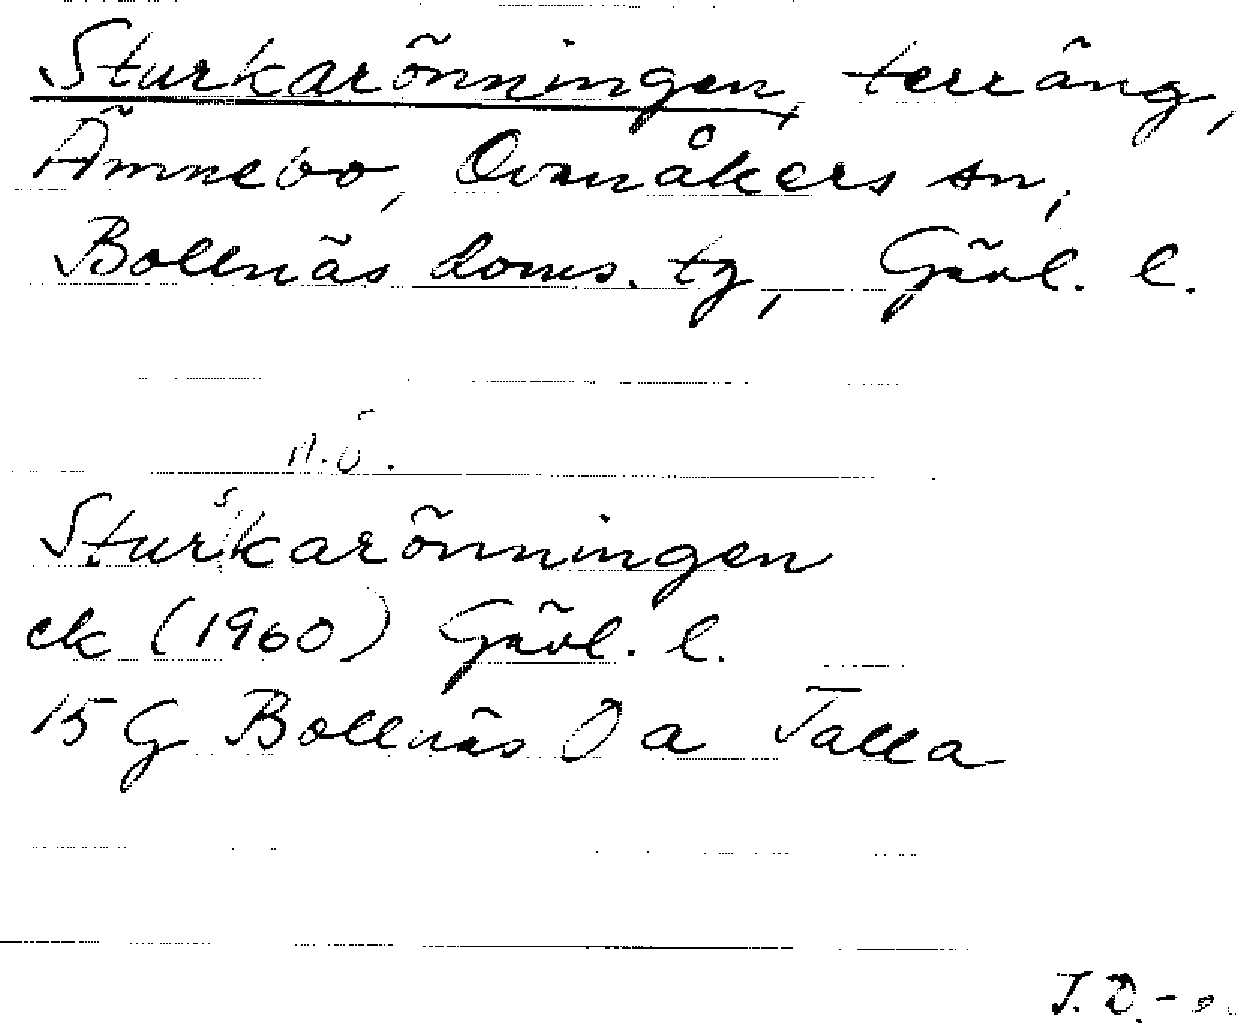 Sturkarönningen, terräng,
Ämnebo, Ovanåkers sn,
Bollnäs doms. tg, Gävl. l.
n.ö.
Sturkarönningen
ek (1960) Gävl. l.
15 G Bollnäs 0 a Talla
J. D.-